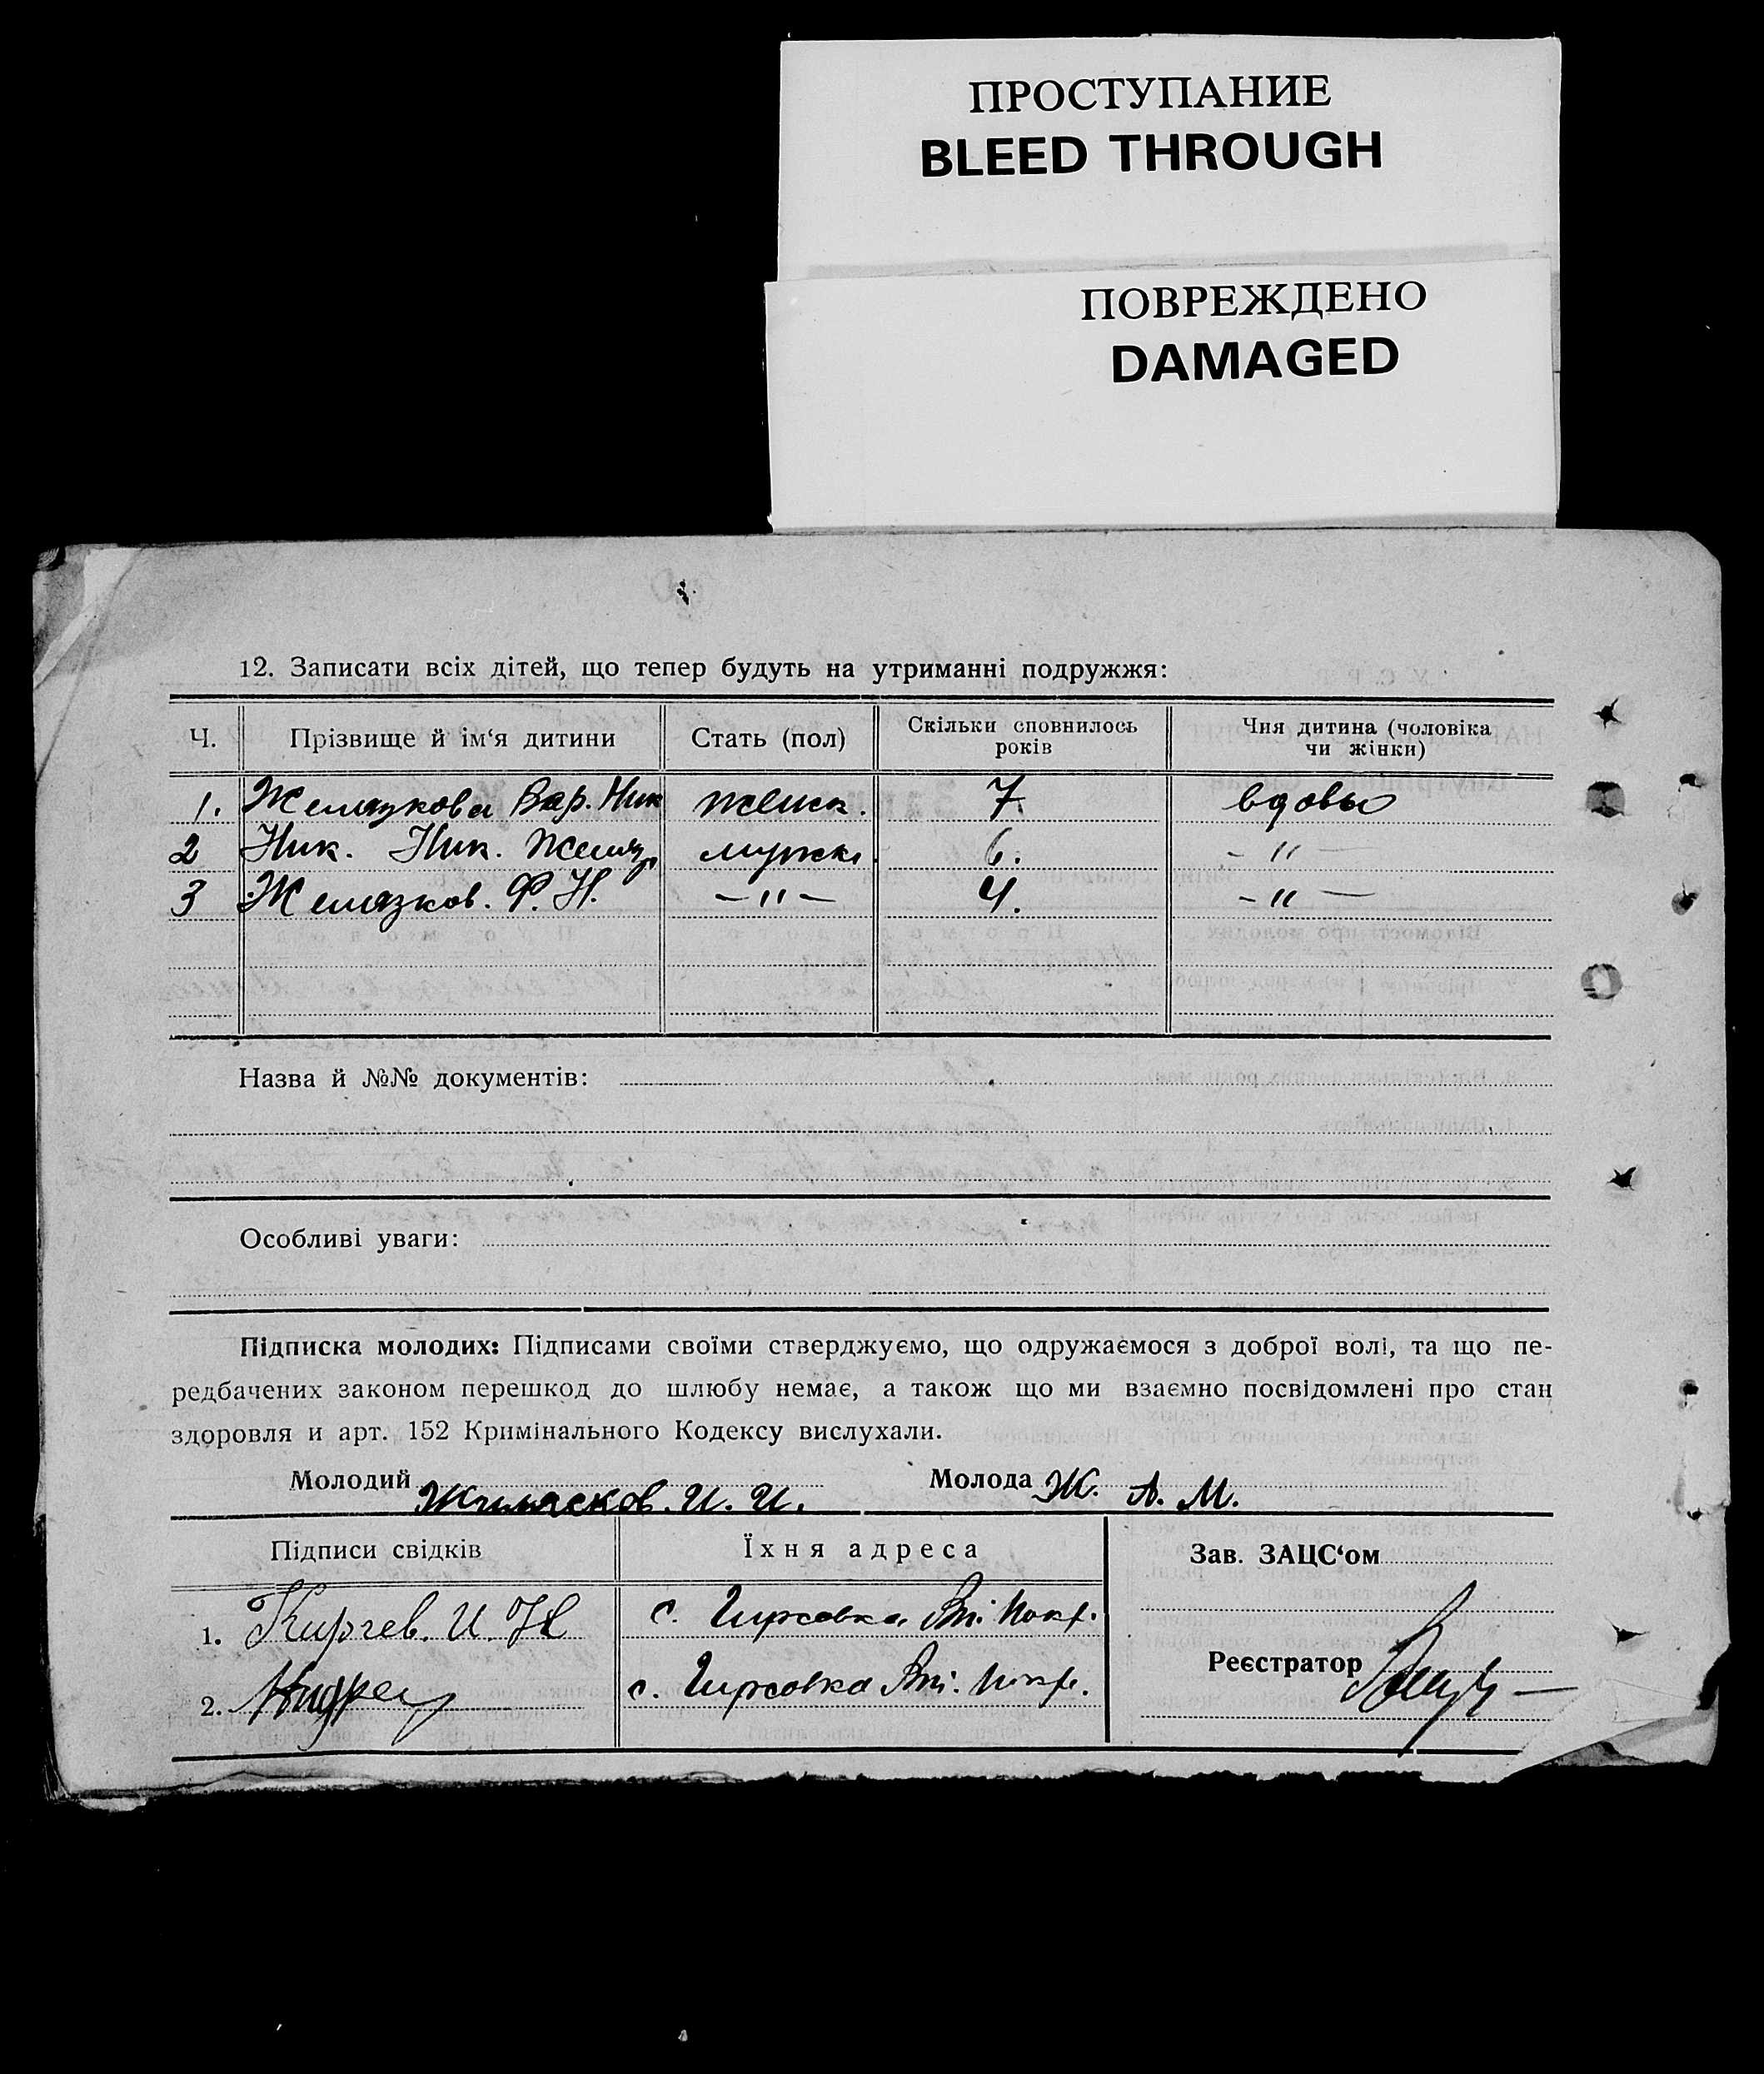 ПРОСТУПАНИЕ
BLEED THROUGH
ПОВРЕЖДЕНО
DAMAGED
12. Записати всіх дітей, що тепер будуть на утриманні подружжя:
Ч. Прізвище й ім‘я дитини Стать (пол) Скільки сповнилось років Чия дитина (чоловіка чи жінки)
1. Желязкова Вар. Ник женск. 7 вдовы
2 Ник. Ник. Желяз мужск. 6. - " -
3 Желязков. Ф. Н. - " - 4. - " -
Назва й №№ документів:
Особливі уваги:
Підписка молодих: Підписами своїми стверджуємо, що одружаємося з доброї волі, та що пе-
редбачених законом перешкод до шлюбу немає, а також що ми взаємно посвідомлені про стан
здоровля и арт. 152 Кримінального Кодексу вислухали.
Молодий Жилясков. И. И. Молода Ж. А. М.
Підписи свідків Їхня адреса Зав. ЗАЦС‘ом
1. Кирчев. И. Н с. Гирсовка
Реєстратор
2. с. Гирсовка